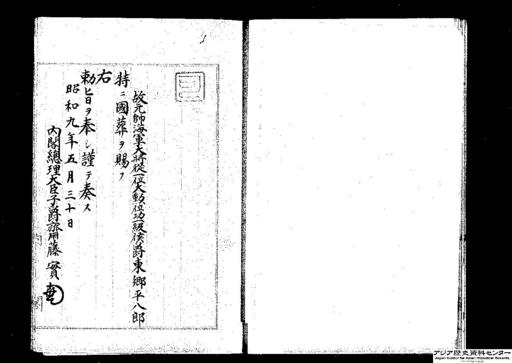 故元帥海軍大将従一位大勲位功一級侯爵東郷平八郎
特ニ國葬ヲ賜フ
右
勅旨ヲ奉シ謹テ奏ス
昭和九年五月三十日
内閣總理大臣子爵齋藤實
アジア歴史資料センター
Japan Center for Asian Historical Records